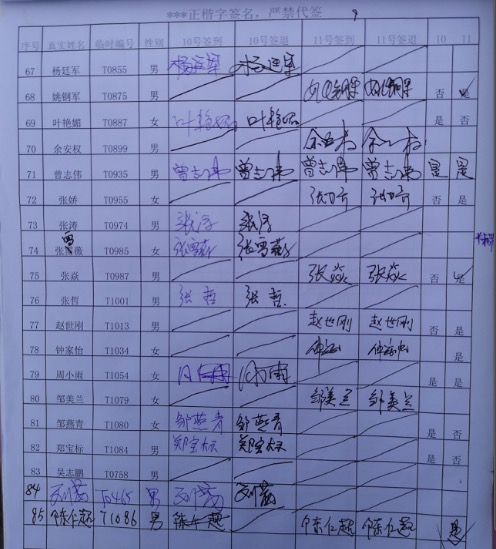 ***正楷字签名，严禁代签
序号 真实姓名 临时编号 性别 10号签到 10号签退 11号签到 11号签退 10 11
67 杨廷军 T0855 男 杨廷军 杨廷军
68 姚钢军 T0875 男 姚钢军 姚钢军 否 是
69 叶艳媚 T0887 女 叶艳媚 叶艳媚 是 否
70 余安权 T0899 男
71 曾志伟 T0935 男 曾志伟 曾志伟 曾志伟 曾志伟 是 是
72 张娇 T0955 女 否 是
73 张涛 T0974 男 张涛 张涛
74 T0985 女
75 张焱 T0987 男 张焱 张焱 否 是
76 张哲 T1001 男 张哲 张哲
77 赵世刚 T1013 男 赵世刚 赵世刚 否 是
78 钟家怡 T1034 女 是
79 周小雨 T1054 女 是 是
80 邹美兰 T1079 女 邹美兰 邹美兰
81 邹燕青 T1080 女 邹燕青 邹燕青 是 否
82 郑宝标 T1084 男 郑宝标 郑宝标 是 否
83 吴志鹏 T0758 男
84 T0465 男
85 陈仁超 T1086 男 陈仁超 陈仁超 陈仁超 是